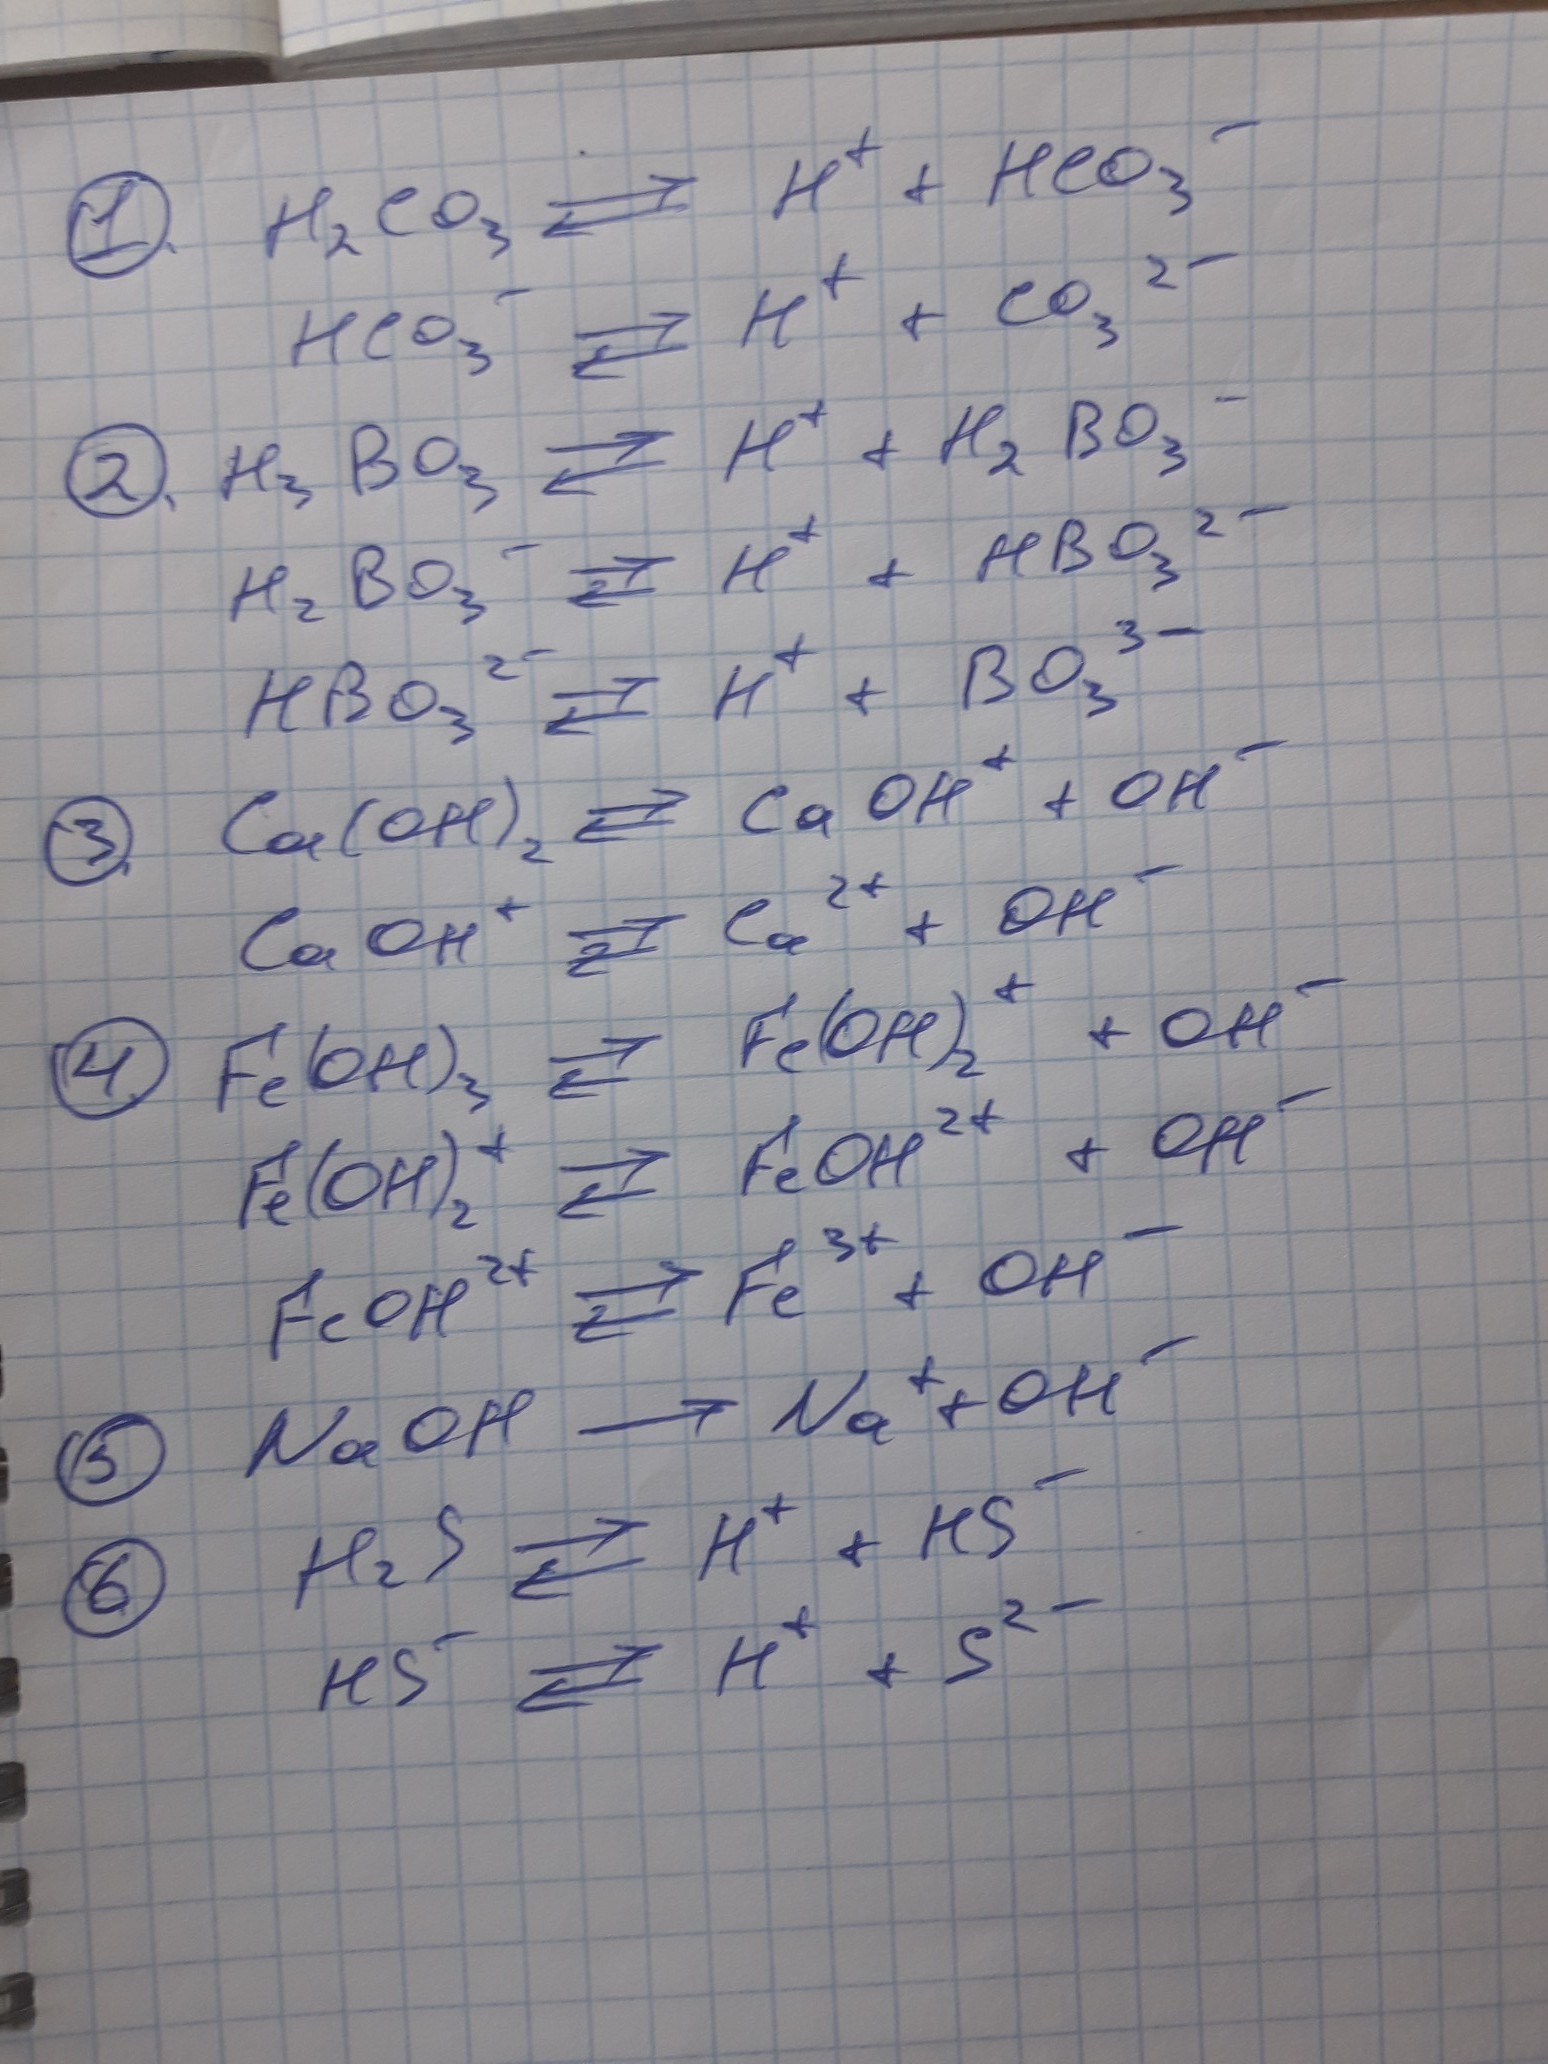 1. H₂CO₃ ⇄ H⁺ + HCO₃⁻
HCO₃⁻ ⇄ H⁺ + CO₃²⁻
2. H₃BO₃ ⇄ H⁺ + H₂BO₃⁻
H₂BO₃⁻ ⇄ H⁺ + HBO₃²⁻
HBO₃²⁻ ⇄ H⁺ + BO₃³⁻
3. Ca(OH)₂ ⇄ CaOH⁺ + OH⁻
CaOH⁺ ⇄ Ca²⁺ + OH⁻
4 Fe(OH)₃ ⇄ Fe(OH)₂⁺ + OH⁻
Fe(OH)₂⁺ ⇄ FeOH²⁺ + OH⁻
FeOH²⁺ ⇄ Fe³⁺ + OH⁻
5 NaOH → Na⁺ + OH⁻
6 H₂S ⇄ H⁺ + HS⁻
HS⁻ ⇄ H⁺ + S²⁻